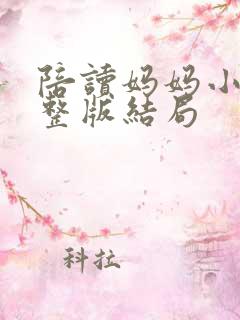 陪讀妈妈小
整版結局
科拉